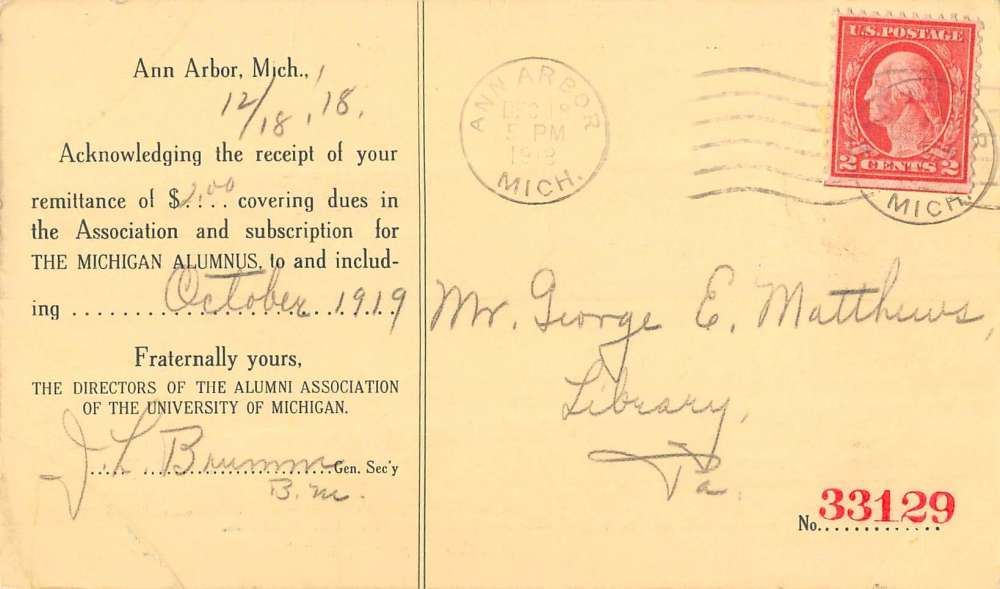 Ann Arbor, Mich.,
12/18, 18,
Acknowledging the receipt of your
remittance of $2.00 covering dues in
the Association and subscription for
THE MICHIGAN ALUMNUS, to and includ-
ing October, 1919
Fraternally yours,
THE DIRECTORS OF THE ALUMNI ASSOCIATION
OF THE UNIVERSITY OF MICHIGAN.
J. L. Brumm Gen. Sec'y
B. M.
ANN ARBOR
5 PM
MICH.
U.S. POSTAGE
2 CENTS 2
MICH.
Mr. George E. Matthews,
Library,
Pa.
No. 33129